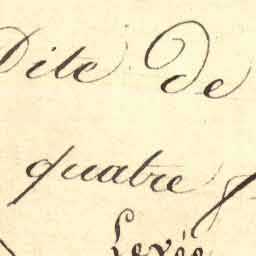 Dite de
quatre
Levée